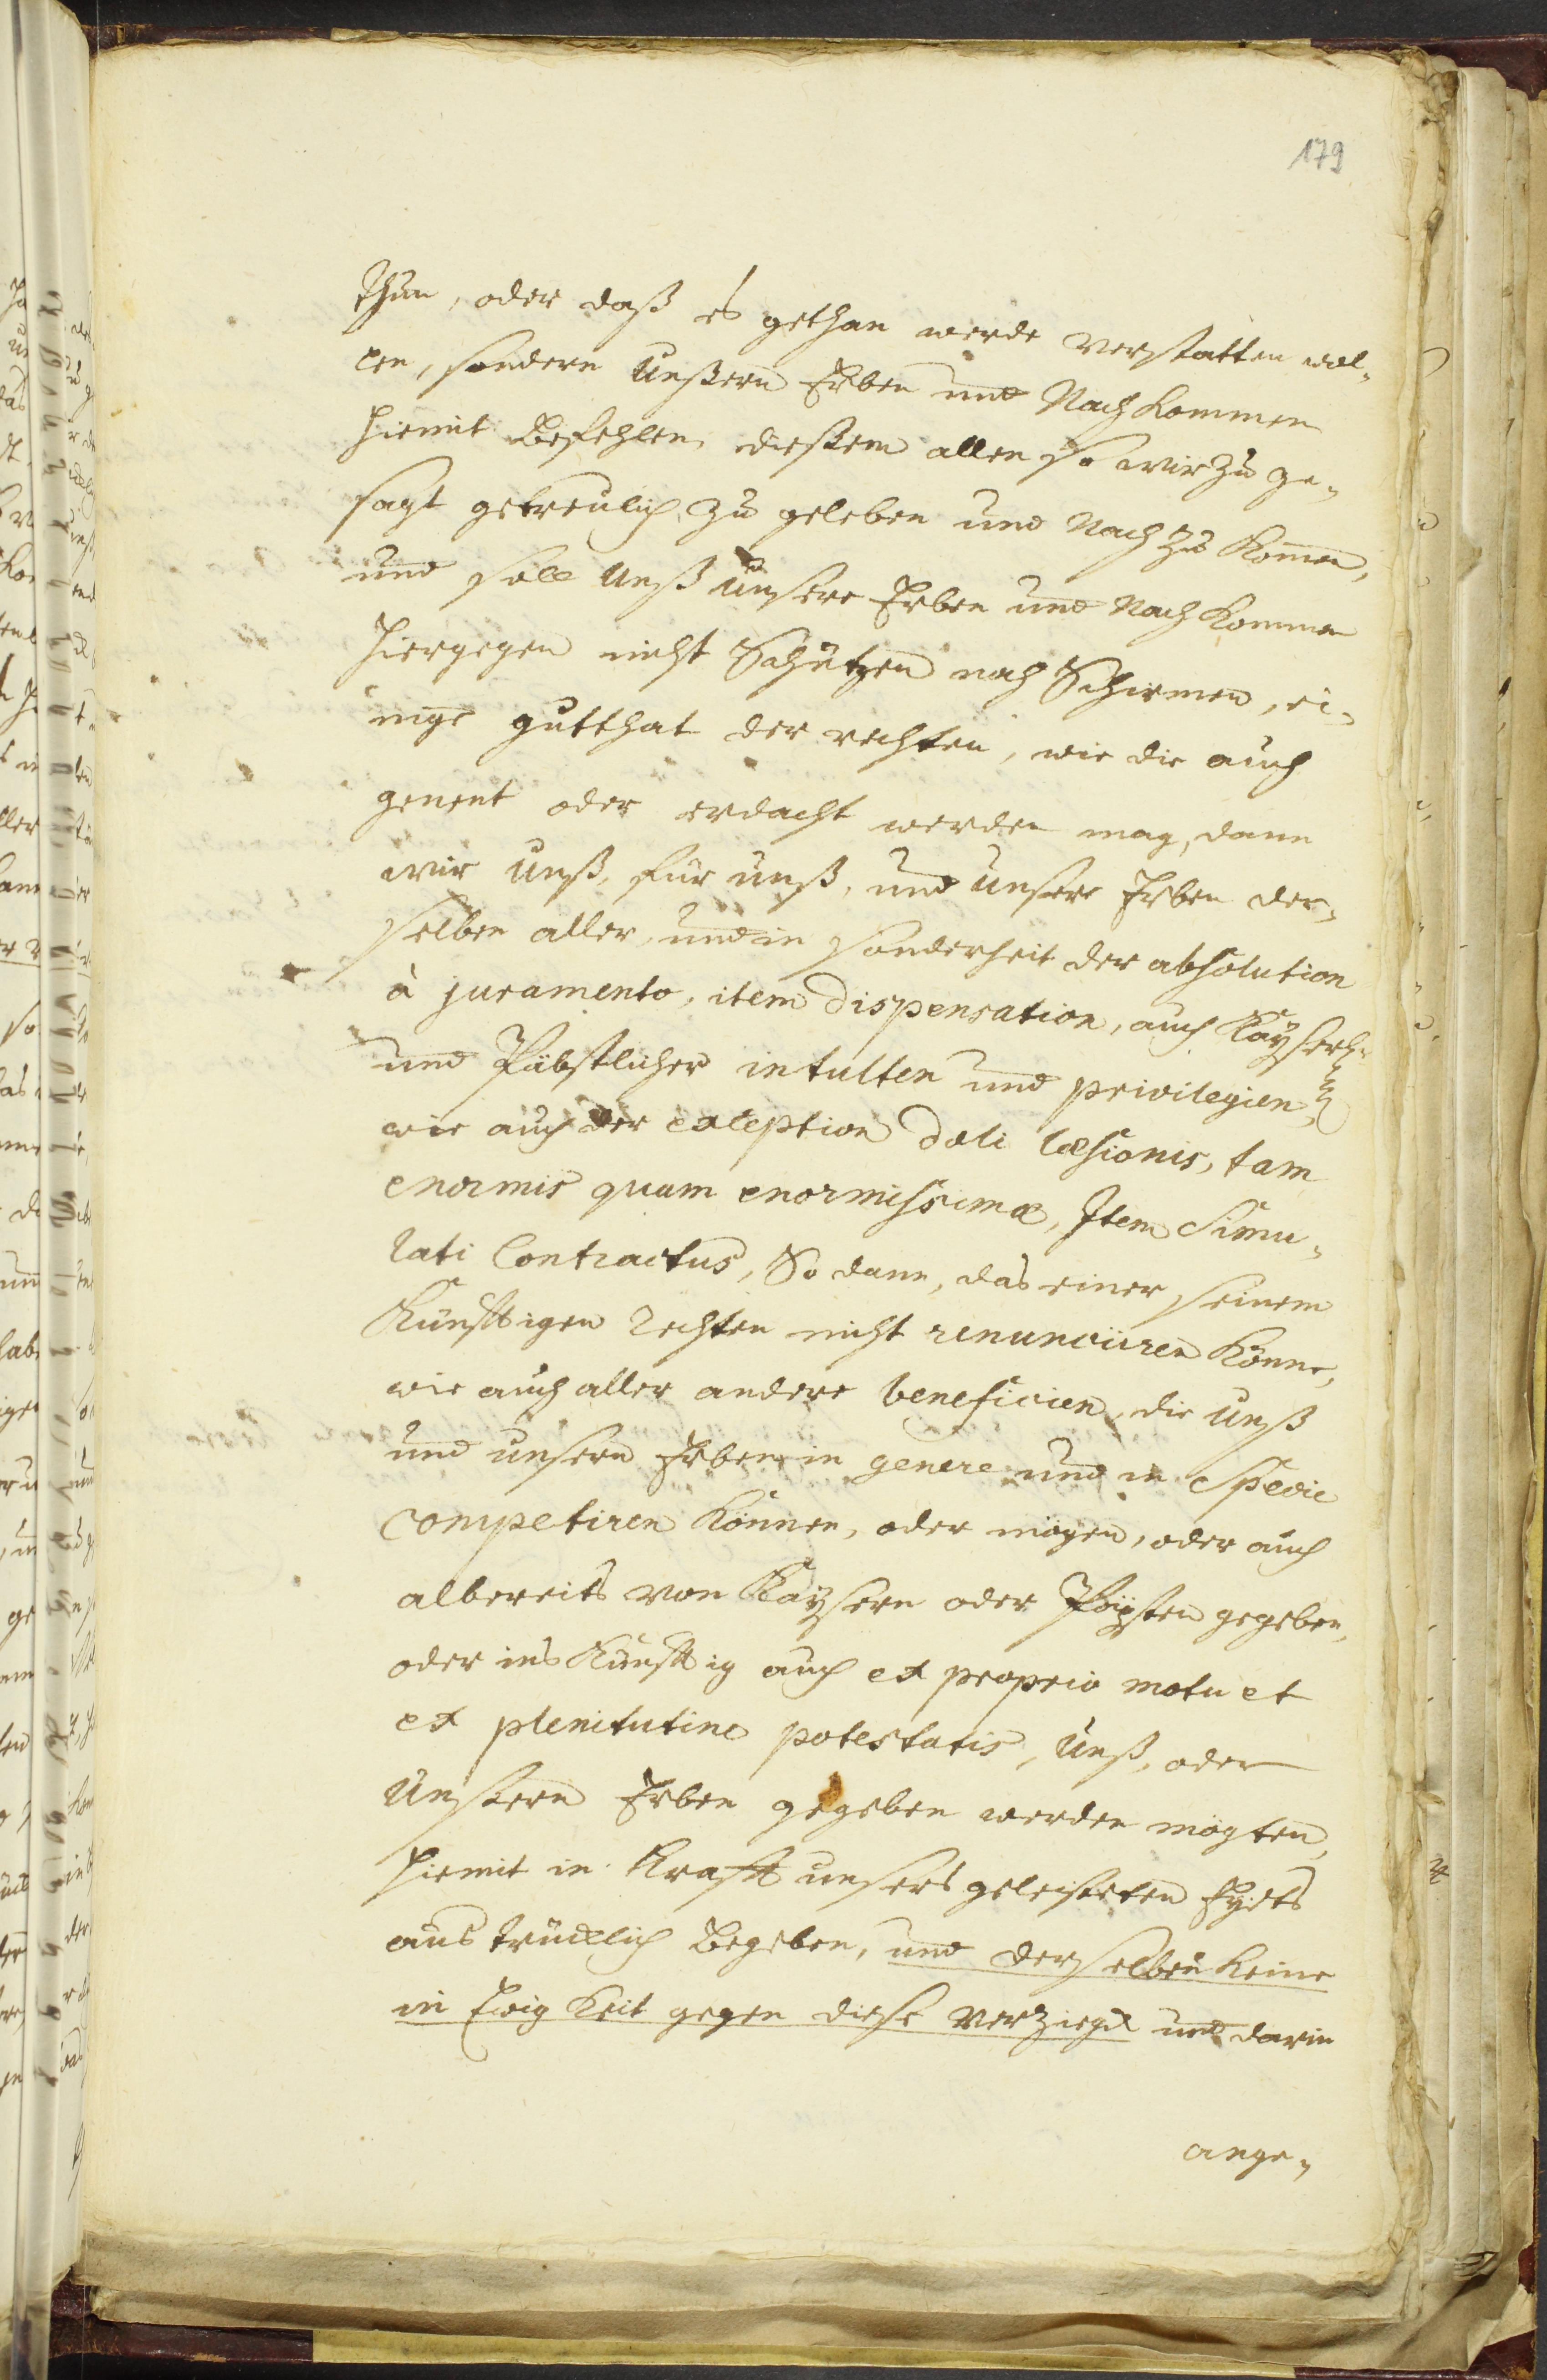 179
thun, oder daß es gethan werde verstatten wol„
len, sondern unßern Erben und Nachkommen
hiemit befehlen, dießem allen so wir zu ge„
sagt getreulich zu geleben und Nach zu kommen,
und soll unß unsere Erben und Nachkommen
hiergegen nicht Schützen noch Schirmen, ei„
nige gutthat der rechten, wie die auch
genent oder erdacht werden mag, dann
wir unß, für unß, und unsere Erben der„
selben aller, und in sonderheit der absolution
à juramento, item dispensation, auch Kayserl:
und Päbstlicher intulten und privilegien,
wie auch der exception doli læsionis, tam
enormis quam enormissimæ, Item Simu„
lati Contractus, So dann, das einer seinem
Künfftigen Rechten nicht renunciiren Könne,
wie auch aller andere beneficien, die unß
und unsern Erben in genere und in Specie
competiren können, oder mögen, oder auch
albereits von Kaysern oder Päpsten gegeben,
oder ins Künfftig auch ex proprio motu et
ex plenitutine potestatis, unß, oder
unßern Erben gegeben werden mögten,
hiemit in Krafft unsers geleisteten Eydts
austrücklich begeben, und derselben keine
in Ewigkeit gegen diese verziegk und darin
ange„